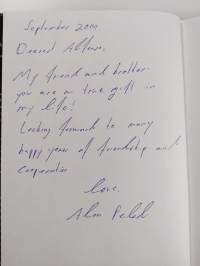 September
Dearest
My friend and brother
you are a true gift in
my life!
Looking forward to many
happy years of friendship and
cooperation
love,
Alon Peled